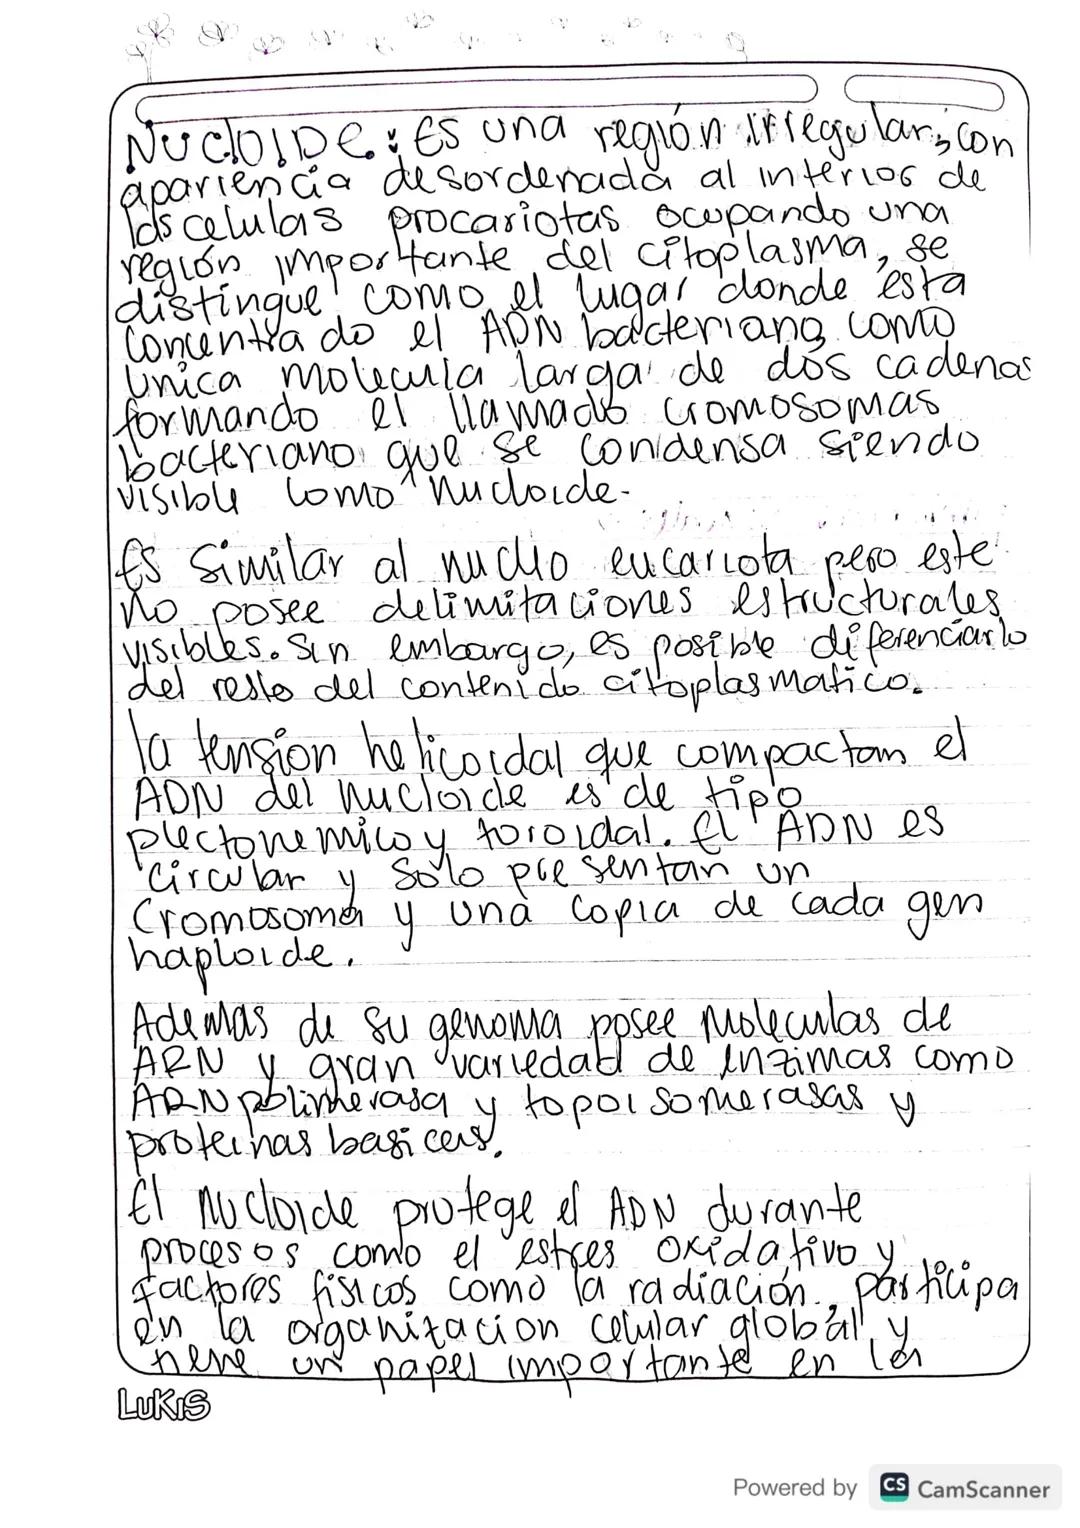 NUCLOIDE: Es una región irregular, con
apariencia desordenada al interior de
las celulas procariotas ocupando una
región importante del citoplasma, se
distingue como el lugar donde esta
concentrado el ADN bacteriano como
unica molecula larga de dos cadenas
formando el llamado cromosomas
bacteriano que se condensa siendo
visible como nucloide-
Es Similar al nucleo eucariota pero este
no posee delimitaciones estructurales
visibles. Sin embargo, es posible diferenciarlo
del resto del contenido citoplasmatico.
la tension helicoidal que compactan el
ADN del nucloide es de tipo
plectonemico y toroidal. El ADN es
circular y solo presentan un
Cromosoma y una copia de cada gen
haploide.
Ademas de su genoma posee moleculas de
ARN y gran variedad de enzimas como
ARN polimerasa y topoisomerasas y
proteinas basicas.
El nucloide protege el ADN durante
procesos como el estres oxidativo y
factores fisicos como la radiación. Participa
en la organizacion celular global y
tiene un papel importante en la
LUKIS
Powered by CS CamScanner